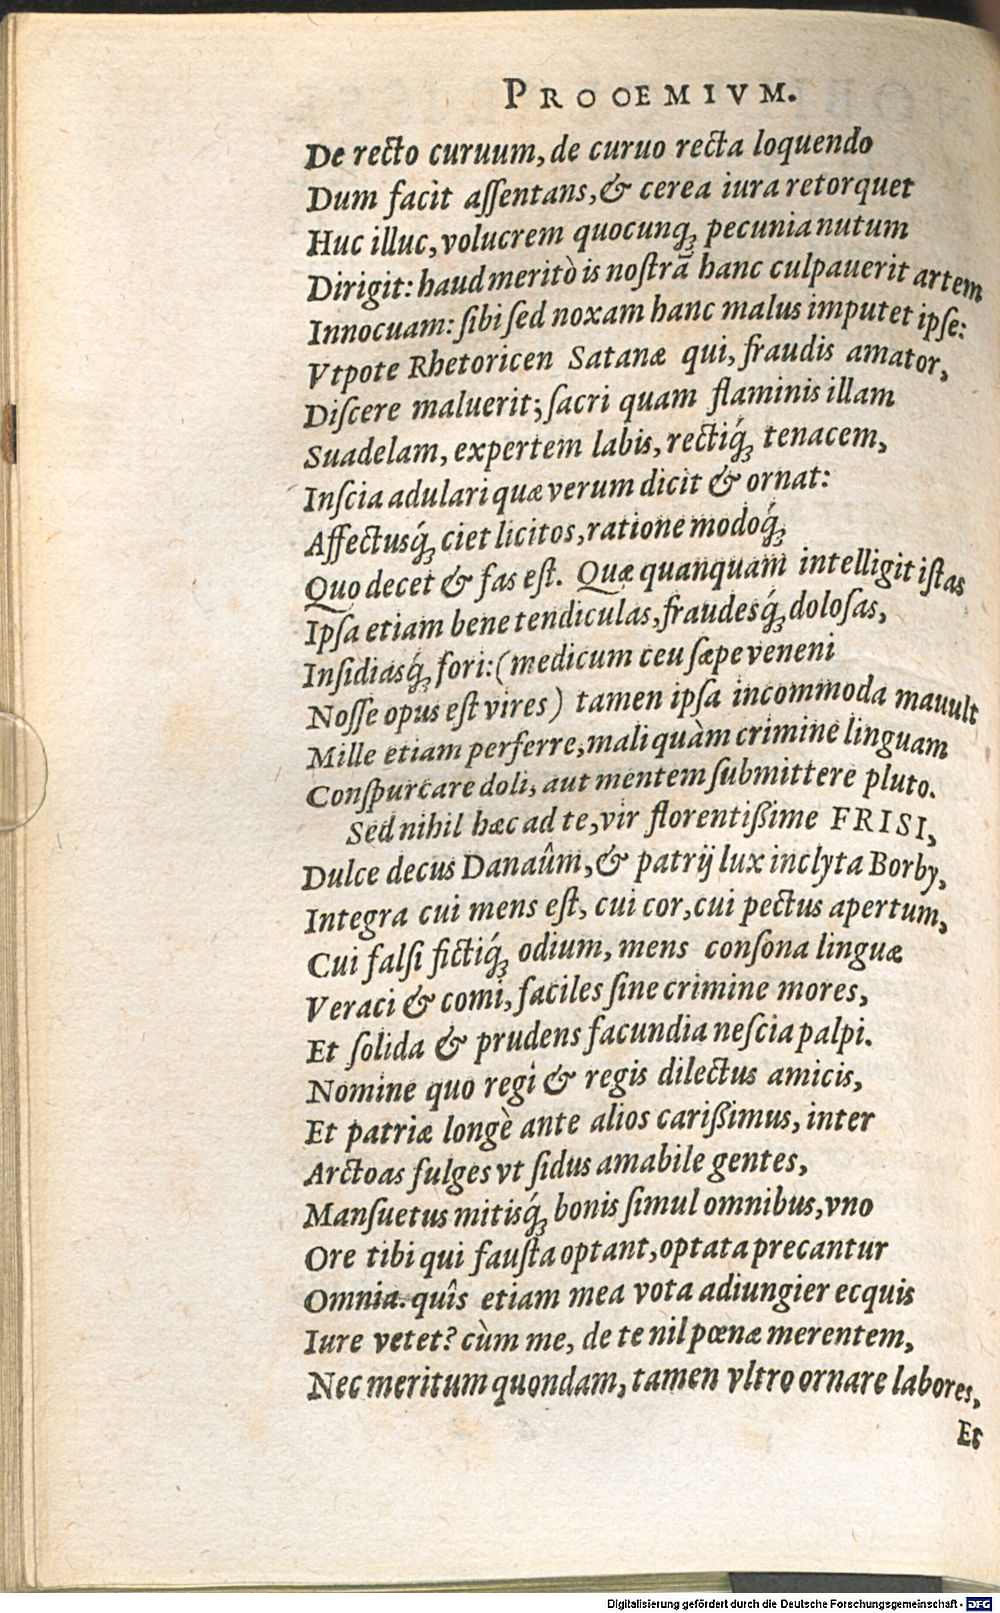 PROOEMIVM.
De recto curuum, de curuo recta loquendo
Dum facit aſſentans, & cerea iura retorquet
Huc illuc, volucrem quocunq; pecunia nutum
Dirigit: haud meritò is noſtrā hanc culpauerit artem
Innocuam: ſibi ſed noxam hanc malus imputet ipſe:
Vtpote Rhetoricen Satanæ qui, fraudis amator,
Diſcere maluerit; ſacri quam flaminis illam
Suadelam, expertem labis, rectiq́; tenacem,
Inſcia adulari quæ verum dicit & ornat:
Affectusq́; ciet licitos, ratione modoq́;
Quo decet & fas eſt. Quæ quanquam intelligit iſtas
Ipſa etiam bene tendiculas, fraudesq́; doloſas,
Inſidiasq́; fori: (medicum ceu ſæpe veneni
Noſſe opus eſt vires) tamen ipſa incommoda mauult
Mille etiam perferre, mali quàm crimine linguam
Conſpurcare doli, aut mentem ſubmittere pluto.
Sed nihil hæc ad te, vir florentißime FRISI,
Dulce decus Danaûm, & patrij lux inclyta Borby,
Integra cui mens eſt, cui cor, cui pectus apertum,
Cui falſi fictiq́; odium, mens conſona linguæ
Veraci & comi, faciles ſine crimine mores,
Et ſolida & prudens facundia neſcia palpi.
Nomine quo regi & regis dilectus amicis,
Et patriæ longè ante alios carißimus, inter
Arctoas fulges vt ſidus amabile gentes,
Manſuetus mitisq́; bonis ſimul omnibus, vno
Ore tibi qui fauſta optant, optata precantur
Omnia. quîs etiam mea vota adiungier ecquis
Iure vetet? cùm me, de te nil pœnæ merentem,
Nec meritum quondam, tamen vltro ornare labores,
Et
Digitalisierung gefördert durch die Deutsche Forschungsgemeinschaft - DFG